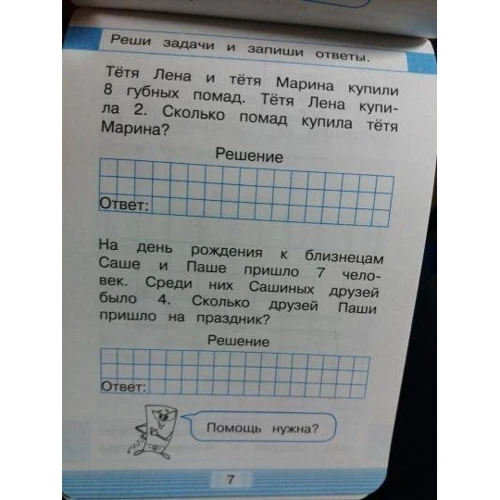 Реши задачи и запиши ответы.
Тётя Лена и тётя Марина купили
8 губных помад. Тётя Лена купи-
ла 2. Сколько помад купила тётя
Марина?
Решение
Ответ:
На день рождения к близнецам
Саше и Паше пришло 7 чело-
век. Среди них Сашиных друзей
было 4. Сколько друзей Паши
пришло на праздник?
Решение
Ответ:
Помощь нужна?
7